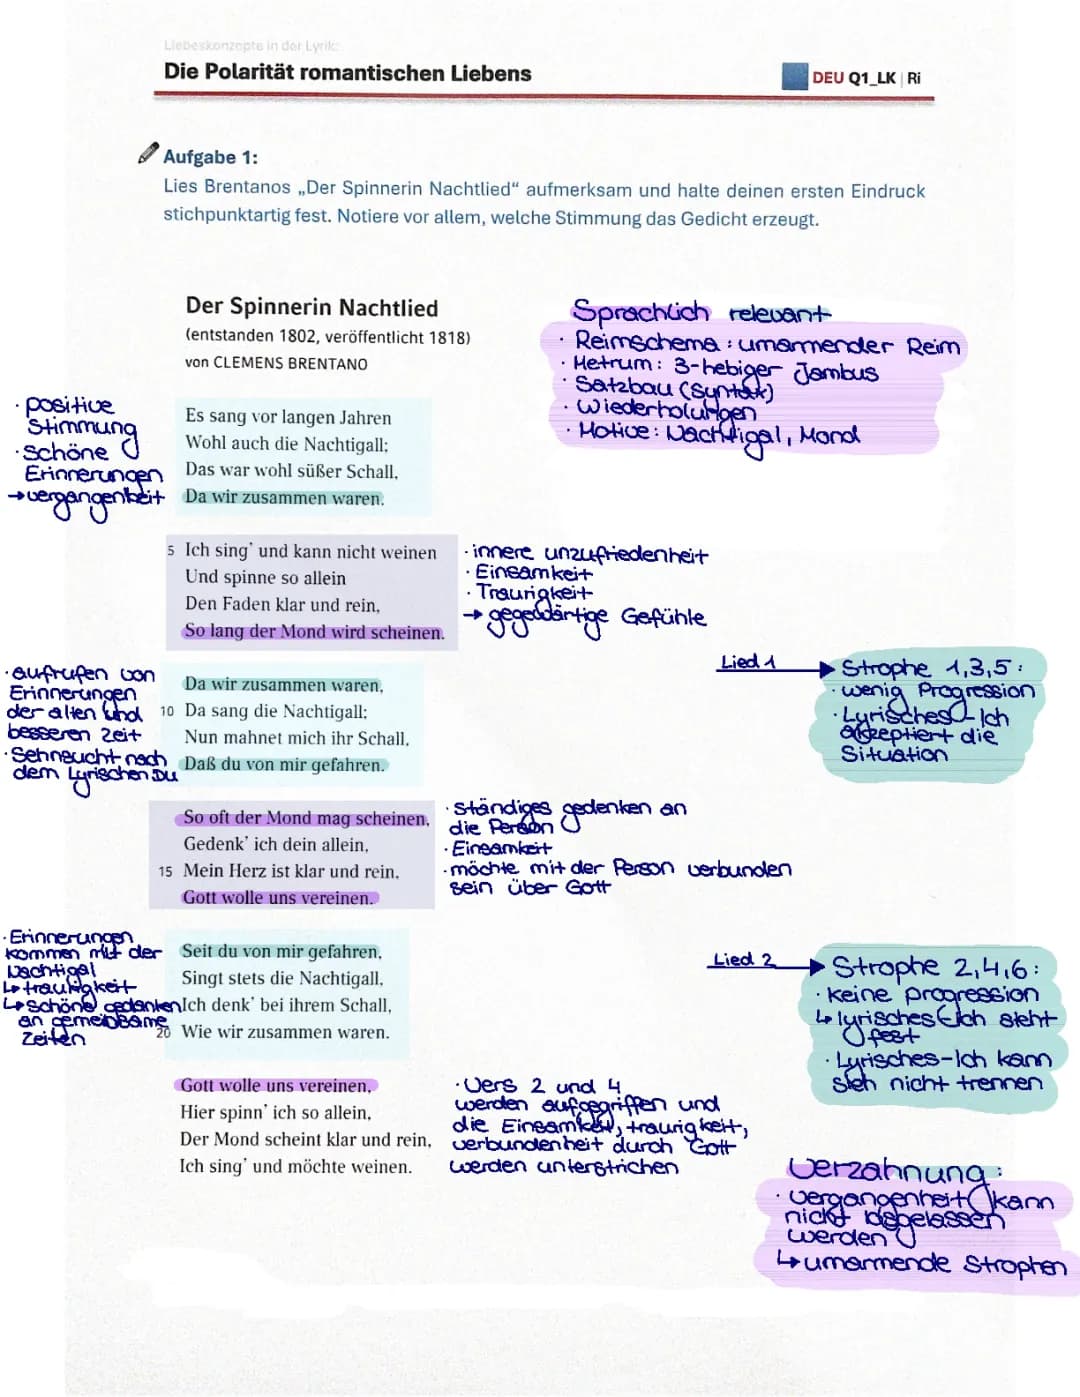 Liebeskonzepte in der Lyrik:
Die Polarität romantischen Liebens
DEU Q1_LK | Ri
Aufgabe 1:
Lies Brentanos „Der Spinnerin Nachtlied“ aufmerksam und halte deinen ersten Eindruck
stichpunktartig fest. Notiere vor allem, welche Stimmung das Gedicht erzeugt.
Der Spinnerin Nachtlied
(entstanden 1802, veröffentlicht 1818)
von CLEMENS BRENTANO
Sprachlich relevant
· Reimschema: umarmender Reim
· Metrum: 3-hebiger Jambus
· Satzbau (Syntax)
· Wiederholungen
· Motive: Nachtigal, Mond
· positive
Stimmung
· schöne
Erinnerungen
→ vergangenheit
Es sang vor langen Jahren
Wohl auch die Nachtigall;
Das war wohl süßer Schall,
Da wir zusammen waren.
5 Ich sing' und kann nicht weinen
Und spinne so allein
Den Faden klar und rein,
So lang der Mond wird scheinen.
· innere unzufriedenheit
· Einsamkeit
· Traurigkeit
→ gegenwärtige Gefühle
· aufrufen von
Erinnerungen
der alten und
besseren zeit
· Sehnsucht nach
dem Lyrischen Du
Da wir zusammen waren,
10 Da sang die Nachtigall;
Nun mahnet mich ihr Schall,
Daß du von mir gefahren.
Lied 1
Strophe 1,3,5:
· wenig Progression
· Lyrisches-Ich
akzeptiert die
Situation
So oft der Mond mag scheinen,
Gedenk' ich dein allein,
15 Mein Herz ist klar und rein,
Gott wolle uns vereinen.
· ständiges gedenken an
die Person
· Einsamkeit
· möchte mit der Person verbunden
sein über Gott
· Erinnerungen
kommen mit der
Nachtigal
↳ traurigkeit
↳ schöne gedanken
an gemeinsame
Zeiten
Seit du von mir gefahren,
Singt stets die Nachtigall,
Ich denk' bei ihrem Schall,
20 Wie wir zusammen waren.
Lied 2
Strophe 2,4,6:
· keine progression
↳ lyrisches Ich steht
fest
· Lyrisches-Ich kann
sich nicht trennen
Gott wolle uns vereinen,
Hier spinn' ich so allein,
Der Mond scheint klar und rein,
Ich sing' und möchte weinen.
· Vers 2 und 4
werden aufgegriffen und
die Einsamkeit, traurigkeit,
verbundenheit durch Gott
werden unterstrichen
Verzahnung:
· vergangenheit kann
nicht losgelassen
werden
↳ umarmende Strophen